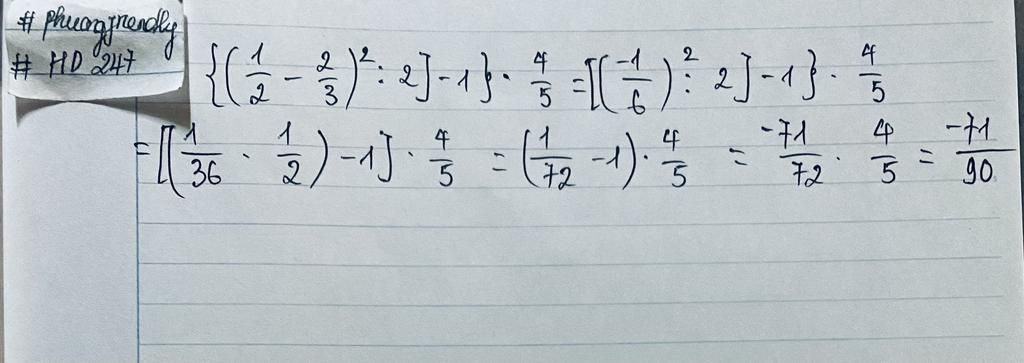 # phuongfrendly
# HD 247
{(1/2 - 2/3)² : 2] - 1} · 4/5 = [(-1/6)² : 2] - 1} · 4/5
= [(1/36 · 1/2) - 1] · 4/5 = (1/72 - 1) · 4/5 = -71/72 · 4/5 = -71/90